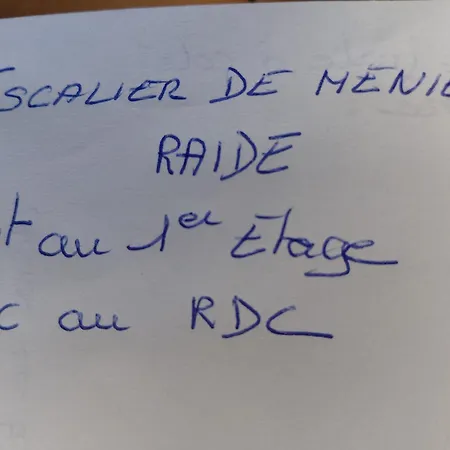 SCALIER DE MENIE
RAIDE
t au 1er Etage
c au RDC